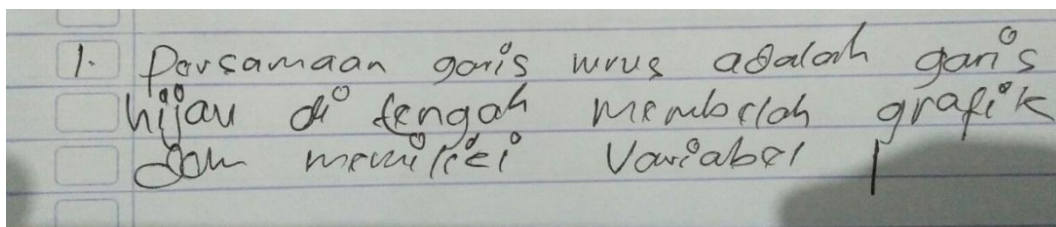 1. Persamaan garis lurus adalah garis
hijau di tengah membelah grafik
dan memiliki Variabel 1